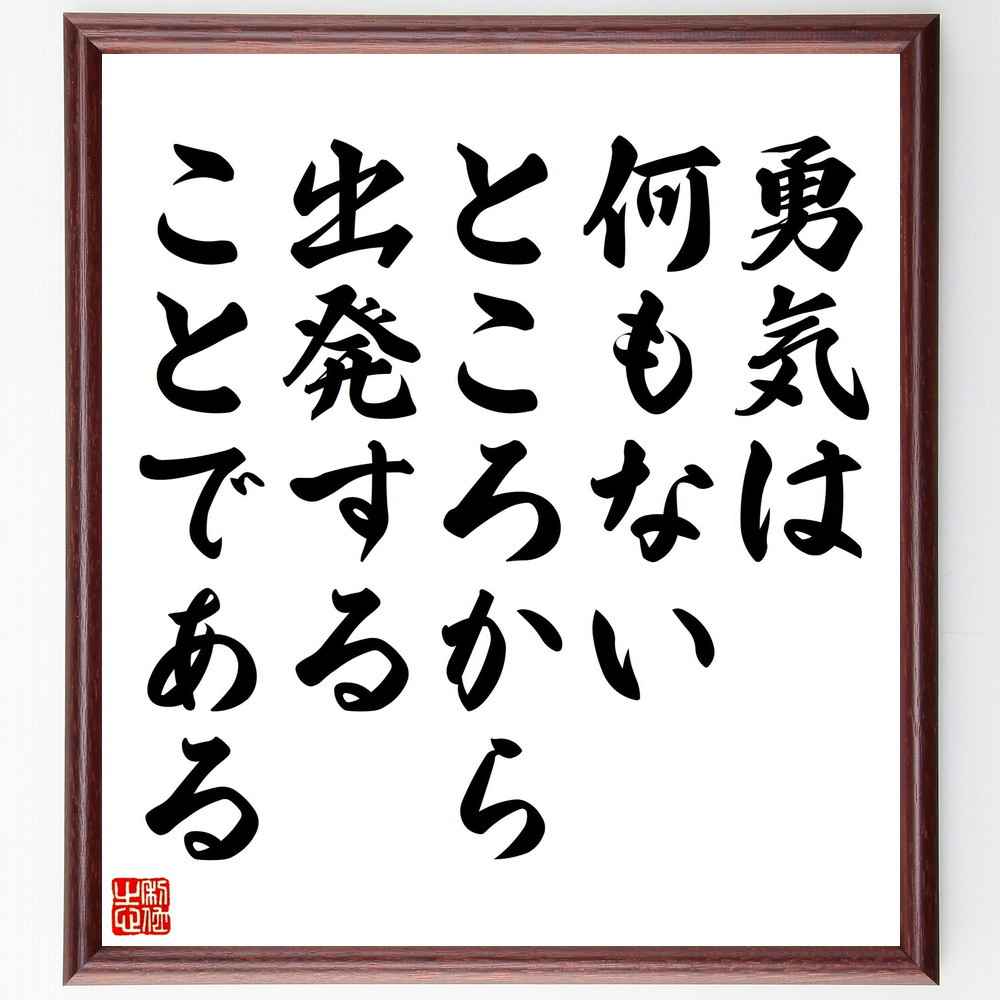 勇気は
何もない
ところから
出発する
ことである